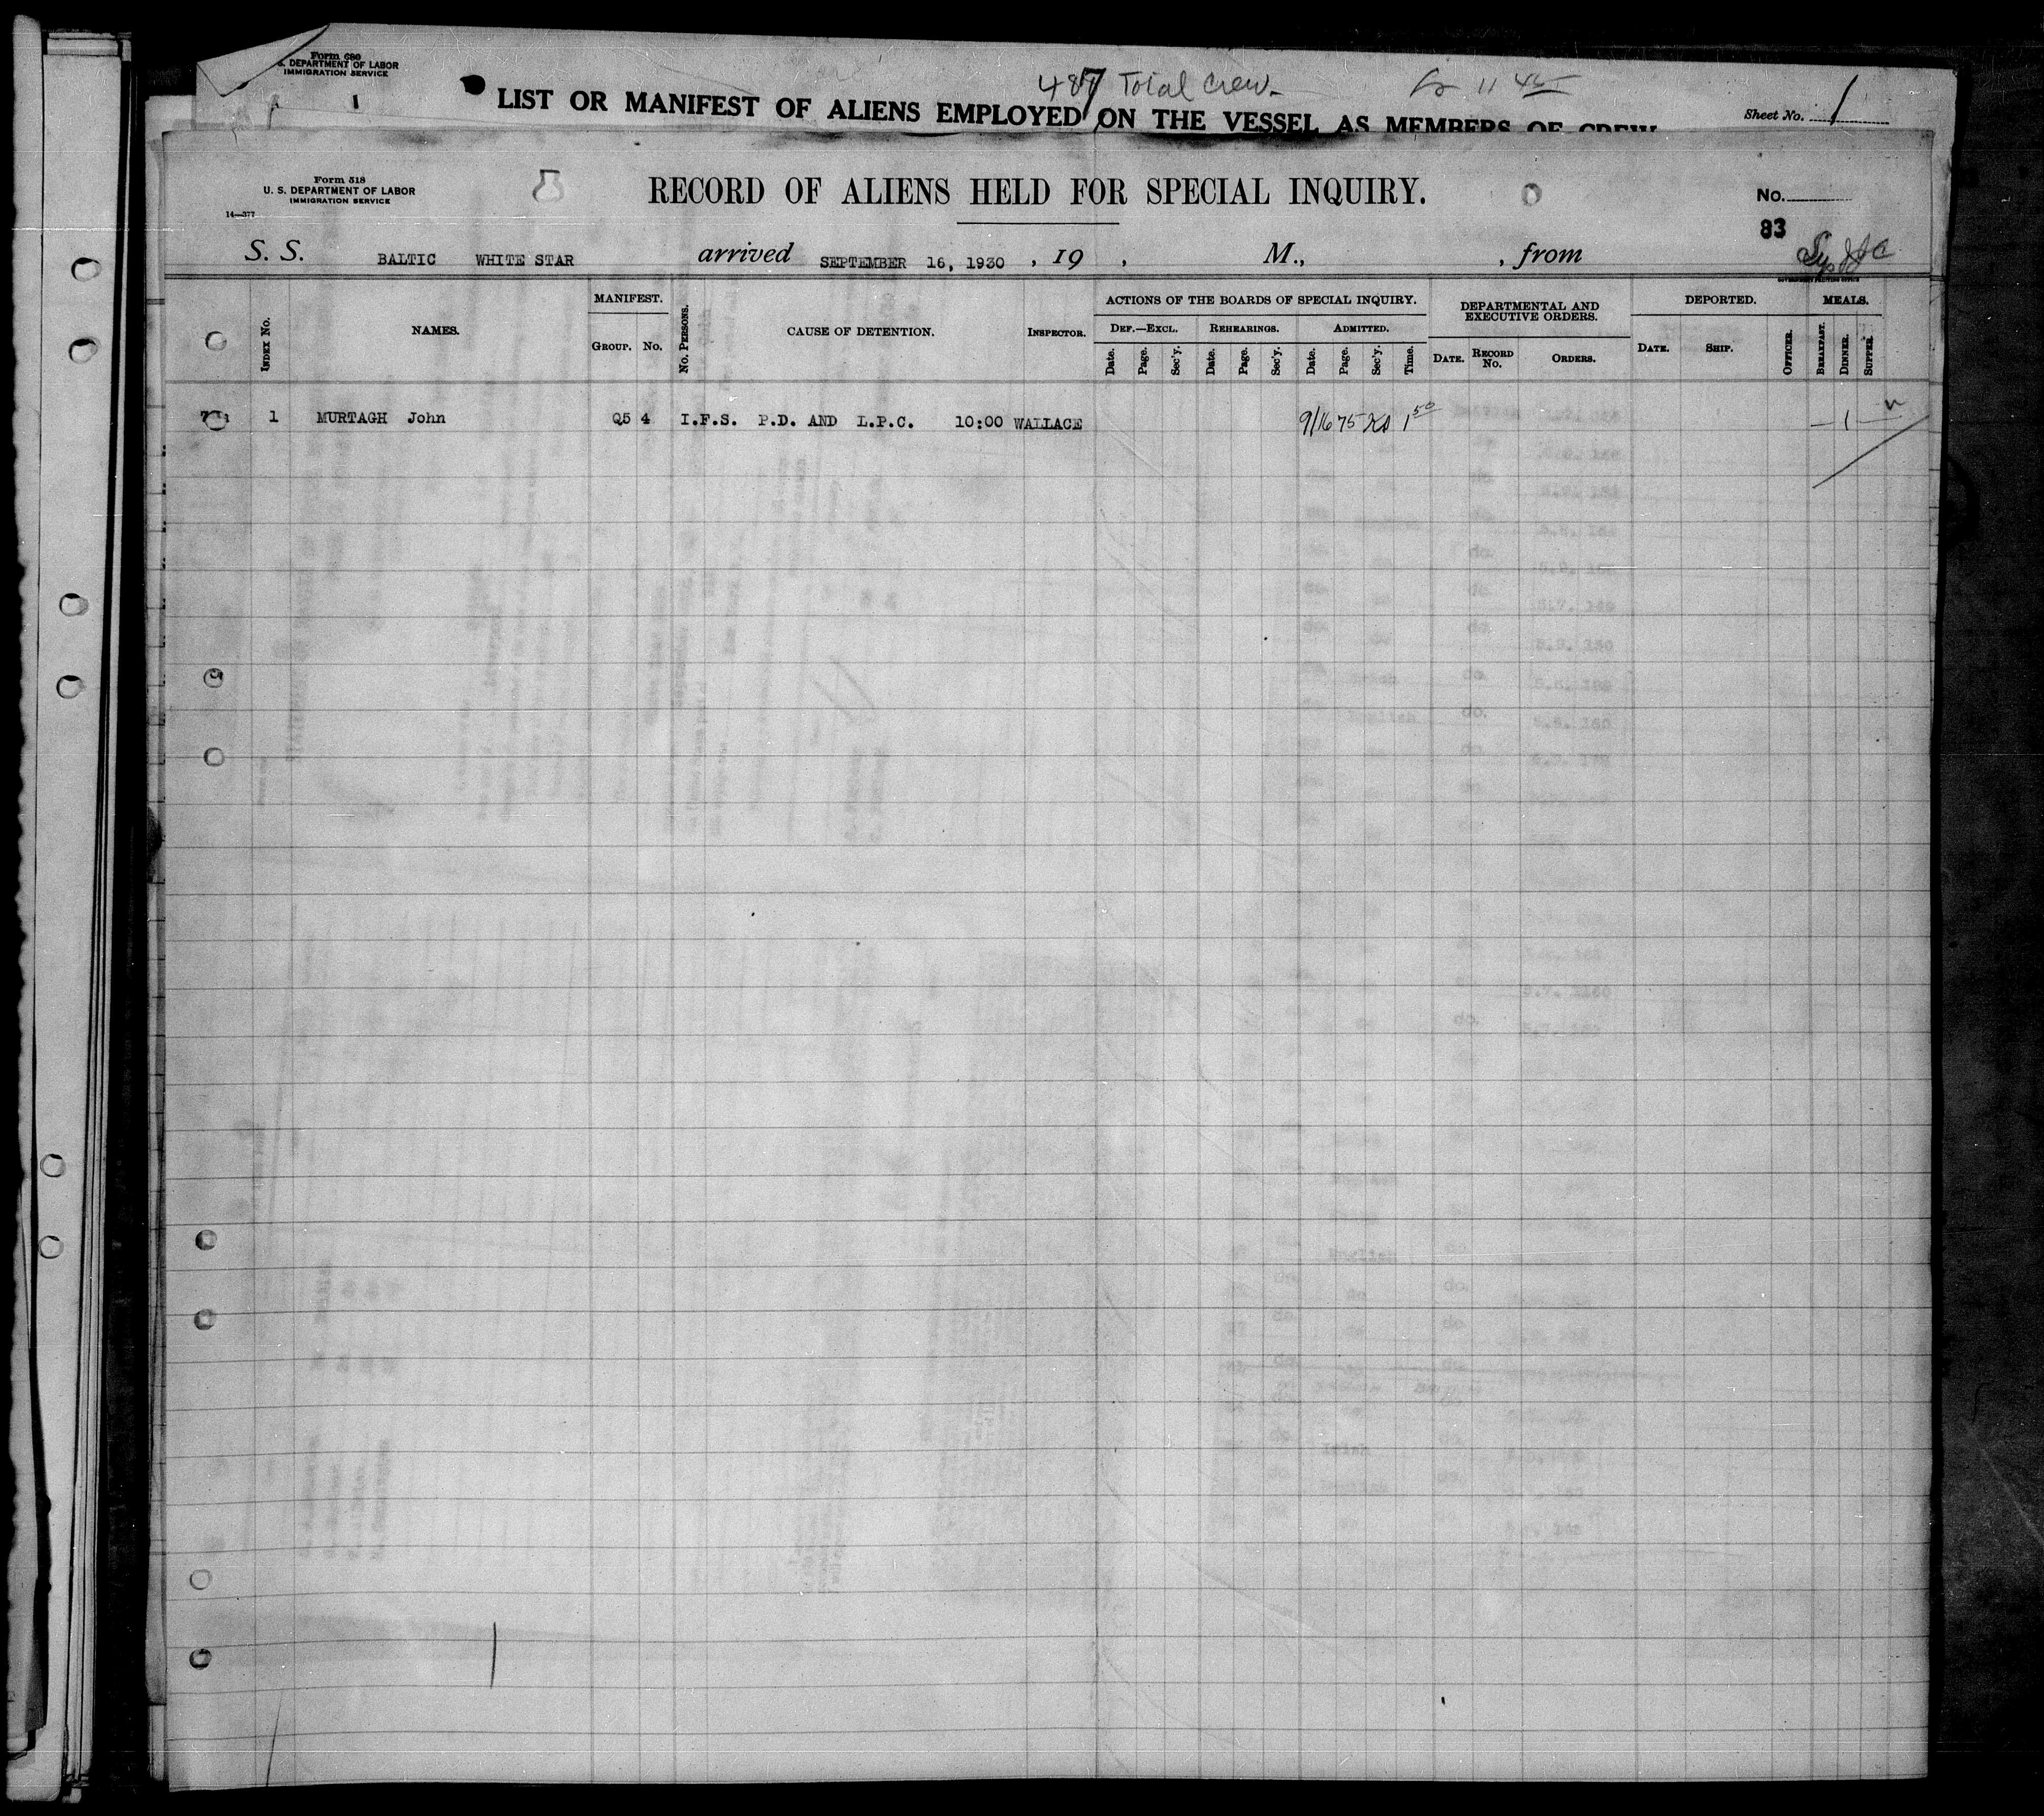 Form 680
DEPARTMENT OF LABOR
IMMIGRATION SERVICE
487 Total Crew
11 45
LIST OR MANIFEST OF ALIENS EMPLOYED ON THE VESSEL AS MEMBERS OF CREW
Sheet No. 1
Form 518
U. S. DEPARTMENT OF LABOR
IMMIGRATION SERVICE
14—377
RECORD OF ALIENS HELD FOR SPECIAL INQUIRY.
No.
83
S. S. BALTIC WHITE STAR arrived SEPTEMBER 16, 1930 , 19 , M., , from
GOVERNMENT PRINTING OFFICE
INDEX No. NAMES. MANIFEST. GROUP. No. No. PERSONS. CAUSE OF DETENTION. INSPECTOR.
ACTIONS OF THE BOARDS OF SPECIAL INQUIRY.
DEF.—EXCL. REHEARINGS. ADMITTED.
Date. Page. Sec'y. Date. Page. Sec'y. Date. Page. Sec'y. Time.
DEPARTMENTAL AND EXECUTIVE ORDERS.
DATE. RECORD No. ORDERS.
DEPORTED.
DATE. SHIP. OFFICER.
MEALS.
BREAKFAST. DINNER. SUPPER.
1 MURTAGH John Q5 4 I.F.S. P.D. AND L.P.C. 10:00 WALLACE 9/16 75 KS 1 50 — 1 —